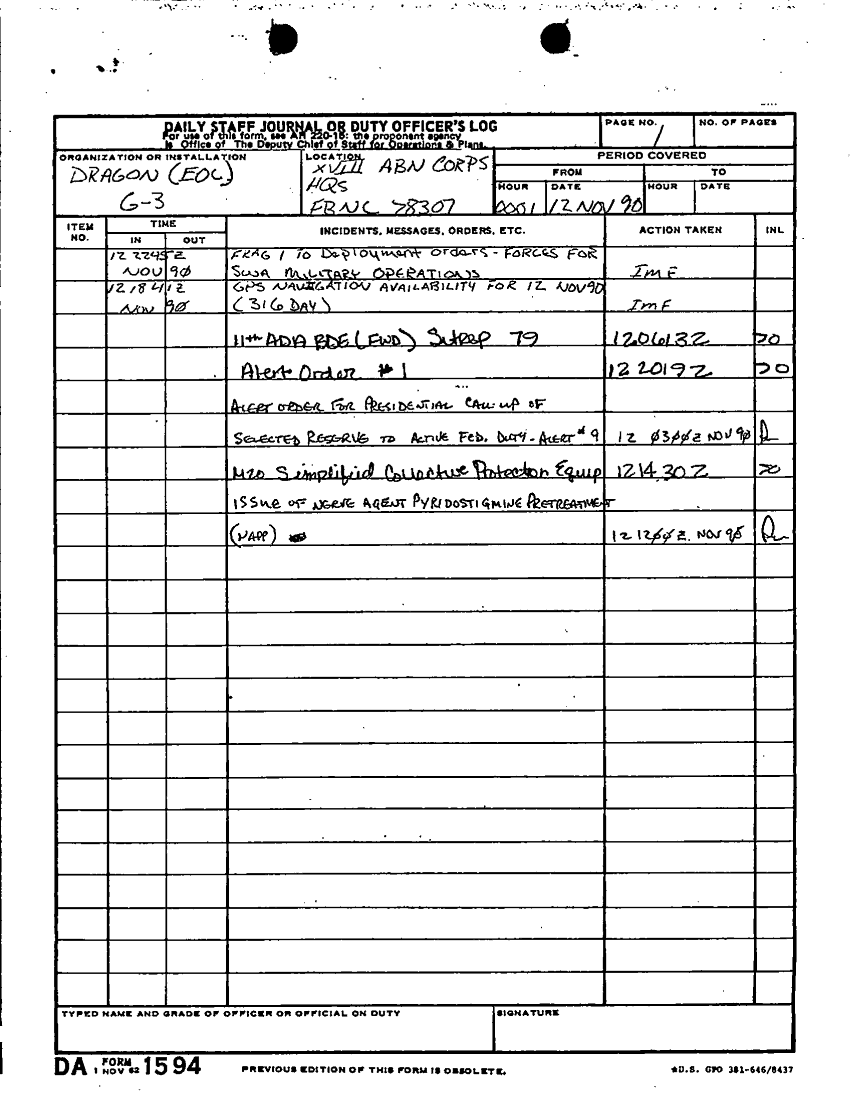 DAILY STAFF JOURNAL OR DUTY OFFICER'S LOG
For use of this form, see AR 220-15; the proponent agency
is Office of The Deputy Chief of Staff for Operations & Plans.
PAGE NO.
1
NO. OF PAGES
ORGANIZATION OR INSTALLATION
DRAGON (EOC)
G-3
LOCATION
XVIII ABN CORPS
HQS
FBNC 28307
PERIOD COVERED
FROM
TO
HOUR
DATE
HOUR
DATE
0001
12 NOV 90
ITEM NO.
TIME
IN
OUT
INCIDENTS, MESSAGES, ORDERS, ETC.
ACTION TAKEN
INL
12 2245Z FRAG 1 TO Deployment orders - FORCES FOR
NOV 90 SWA MILITARY OPERATIONS IMF
12 1841Z GPS NAVIGATION AVAILABILITY FOR 12 NOV90
NOV 90 (316 DAY) IMF
11th ADA BDE (FWD) Sitrep 79 120613Z
Alert Order #1 122019Z
ALERT ORDER FOR PRESIDENTIAL CALL-UP OF
SELECTED RESERVE TO ACTIVE FED. DUTY - ALERT #9 12 0300Z NOV 90
M20 Simplified Collective Protection Equip 121430Z
ISSUE OF NERVE AGENT PYRIDOSTIGMINE PRETREATMENT
(NAPP) 12 1200Z NOV 90
TYPED NAME AND GRADE OF OFFICER OR OFFICIAL ON DUTY
SIGNATURE
DA FORM 1594
1 NOV 62
PREVIOUS EDITION OF THIS FORM IS OBSOLETE.
GPO 381-646/8437